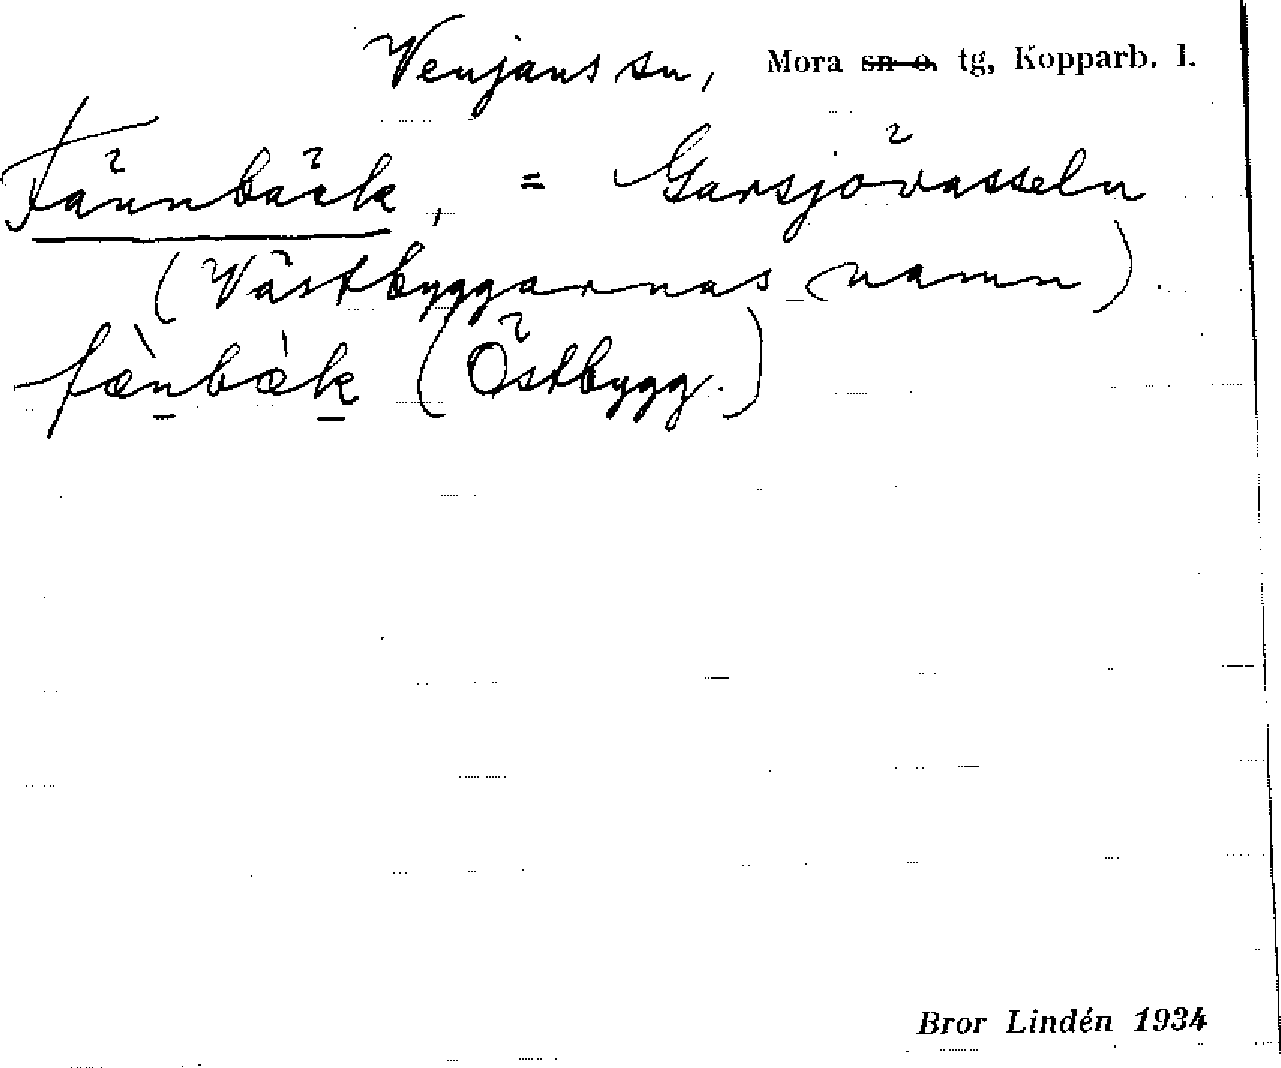 Venjans sn, Mora sn o. tg, Kopparb. l.
Fännbäck, = Garsjövasseln
(Västbyggarnas namn).
fæ̀nbæ̀k (Östbygg.)
Bror Lindén 1934